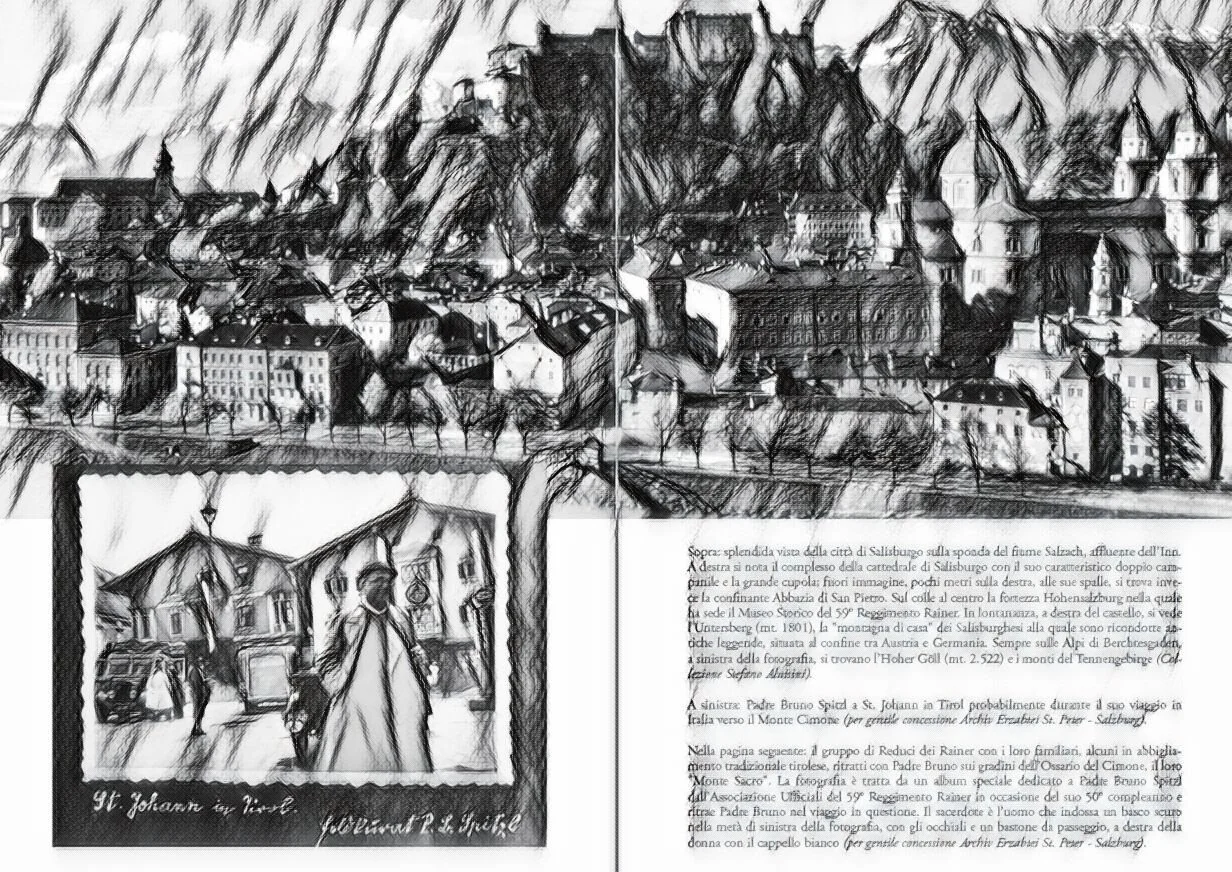 St. Johann in Tirol.
Feldkurat P. B. Spitzl
Sopra: splendida vista della città di Salisburgo sulla sponda del fiume Salzach, affluente dell'Inn.
A destra si nota il complesso della cattedrale di Salisburgo con il suo caratteristico doppio cam-
panile e la grande cupola; fuori immagine, pochi metri sulla destra, alle sue spalle, si trova inve-
ce la confinante Abbazia di San Pietro. Sul colle al centro la fortezza Hohensalzburg nella quale
ha sede il Museo Storico del 59° Reggimento Rainer. In lontananza, a destra del castello, si vede
l'Untersberg (mt. 1801), la "montagna di casa" dei Salisburghesi alla quale sono ricondotte an-
tiche leggende, situata al confine tra Austria e Germania. Sempre sulle Alpi di Berchtesgaden,
a sinistra della fotografia, si trovano l'Hoher Göll (mt. 2.522) e i monti del Tennengebirge (Col-
lezione Stefano Aluisini).
A sinistra: Padre Bruno Spitzl a St. Johann in Tirol probabilmente durante il suo viaggio in
Italia verso il Monte Cimone (per gentile concessione Archiv Erzabtei St. Peter - Salzburg).
Nella pagina seguente: il gruppo di Reduci dei Rainer con i loro familiari, alcuni in abbiglia-
mento tradizionale tirolese, ritratti con Padre Bruno sui gradini dell'Ossario del Cimone, il loro
"Monte Sacro". La fotografia è tratta da un album speciale dedicato a Padre Bruno Spitzl
dall'Associazione Ufficiali del 59° Reggimento Rainer in occasione del suo 50° compleanno e
ritrae Padre Bruno nel viaggio in questione. Il sacerdote è l'uomo che indossa un basco scuro
nella metà di sinistra della fotografia, con gli occhiali e un bastone da passeggio, a destra della
donna con il cappello bianco (per gentile concessione Archiv Erzabtei St. Peter - Salzburg).